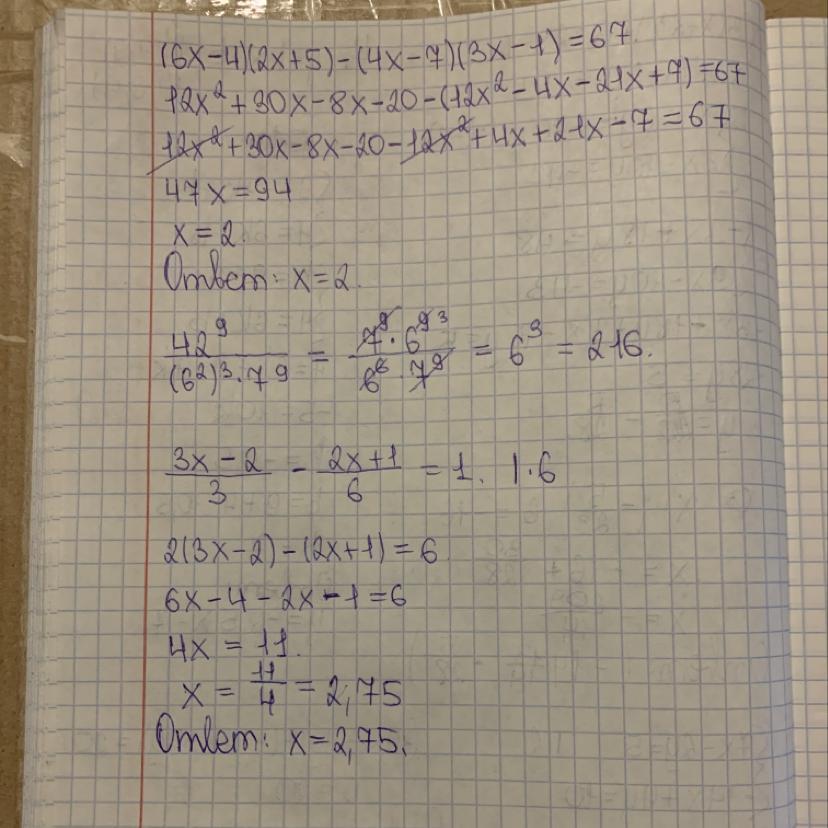 (6x-4)(2x+5)-(4x-7)(3x-1)=67
12x²+30x-8x-20-(12x²-4x-21x+7)=67
12x²+30x-8x-20-12x²+4x+21x-7=67
47x=94
x=2
Ответ: x=2.
42⁹/((6²)³·7⁹) = (7⁹·6⁹ ³)/(6⁶·7⁹) = 6³ = 216.
(3x-2)/3 - (2x+1)/6 = 1. |·6
2(3x-2)-(2x+1)=6
6x-4-2x-1=6
4x=11.
x = 11/4 = 2,75
Ответ: x=2,75.